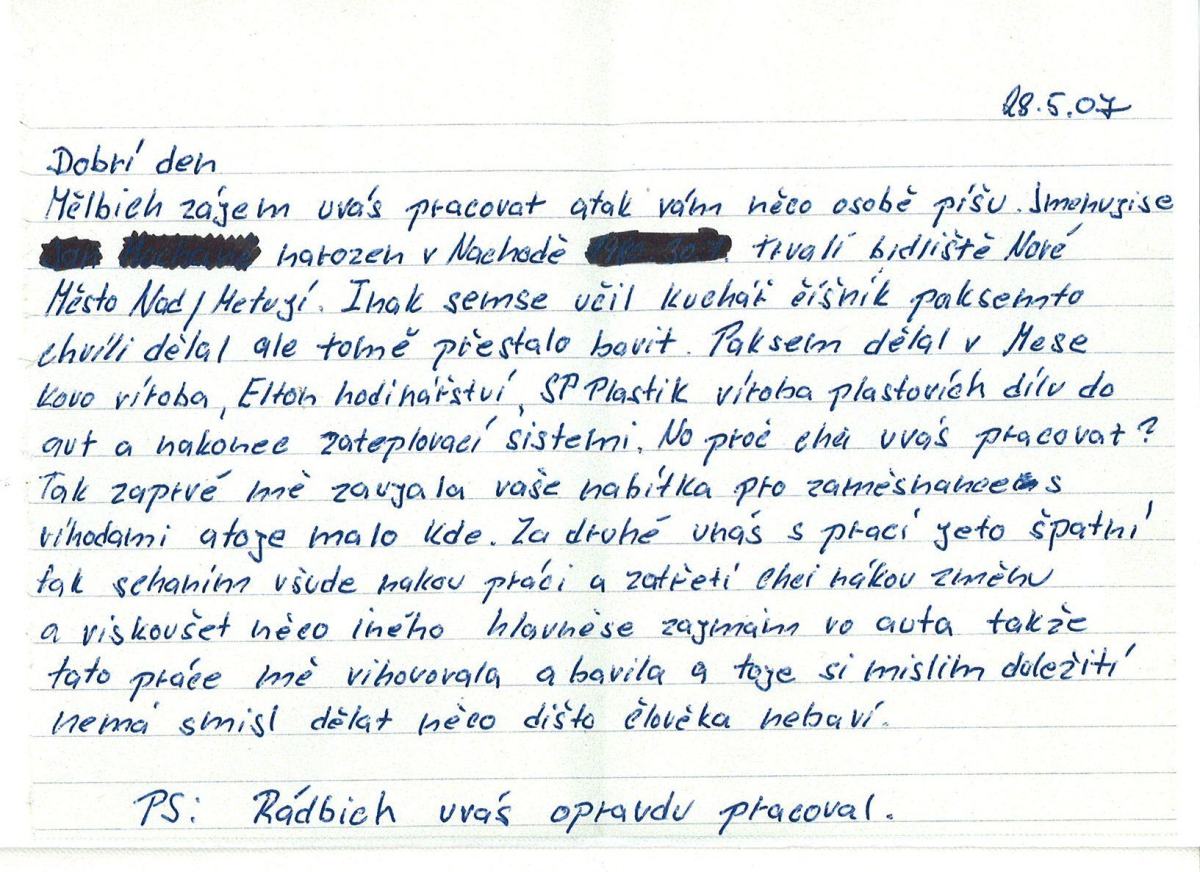 28.5.07
Dobrí den
Mělbich zájem uvás pracovat atak vám něco osobě píšu. Jmenujise
narozen v Nachodě trvalí bidliště Nové
Město Nad/Metují. Inak semse učil kuchář číšník paksemto
chvíli dělal ale tomě přestalo bavit. Paksem dělal v Mese
kovo víroba, Elton hodinářství, SP Plastik víroba plastovích dílu do
aut a nakonec zateplovací sistemi. No proč chci uvás pracovat?
Tak zaprvé mě zaujala vaše nabítka pro zaměsnance s
víhodami atoje malo kde. Za druhé unás s prací jeto špatní
tak schaním všude nakou práci a zatřetí chci nákou změnu
a viskoušet něco iného hlavněse zajmám vo auta takže
tato práce mě vihovovala a bavila a toje si mislim duležití
nemá smisl dělat něco dišto člověka nebaví.
PS: Rádbich uvás opravdu pracoval.